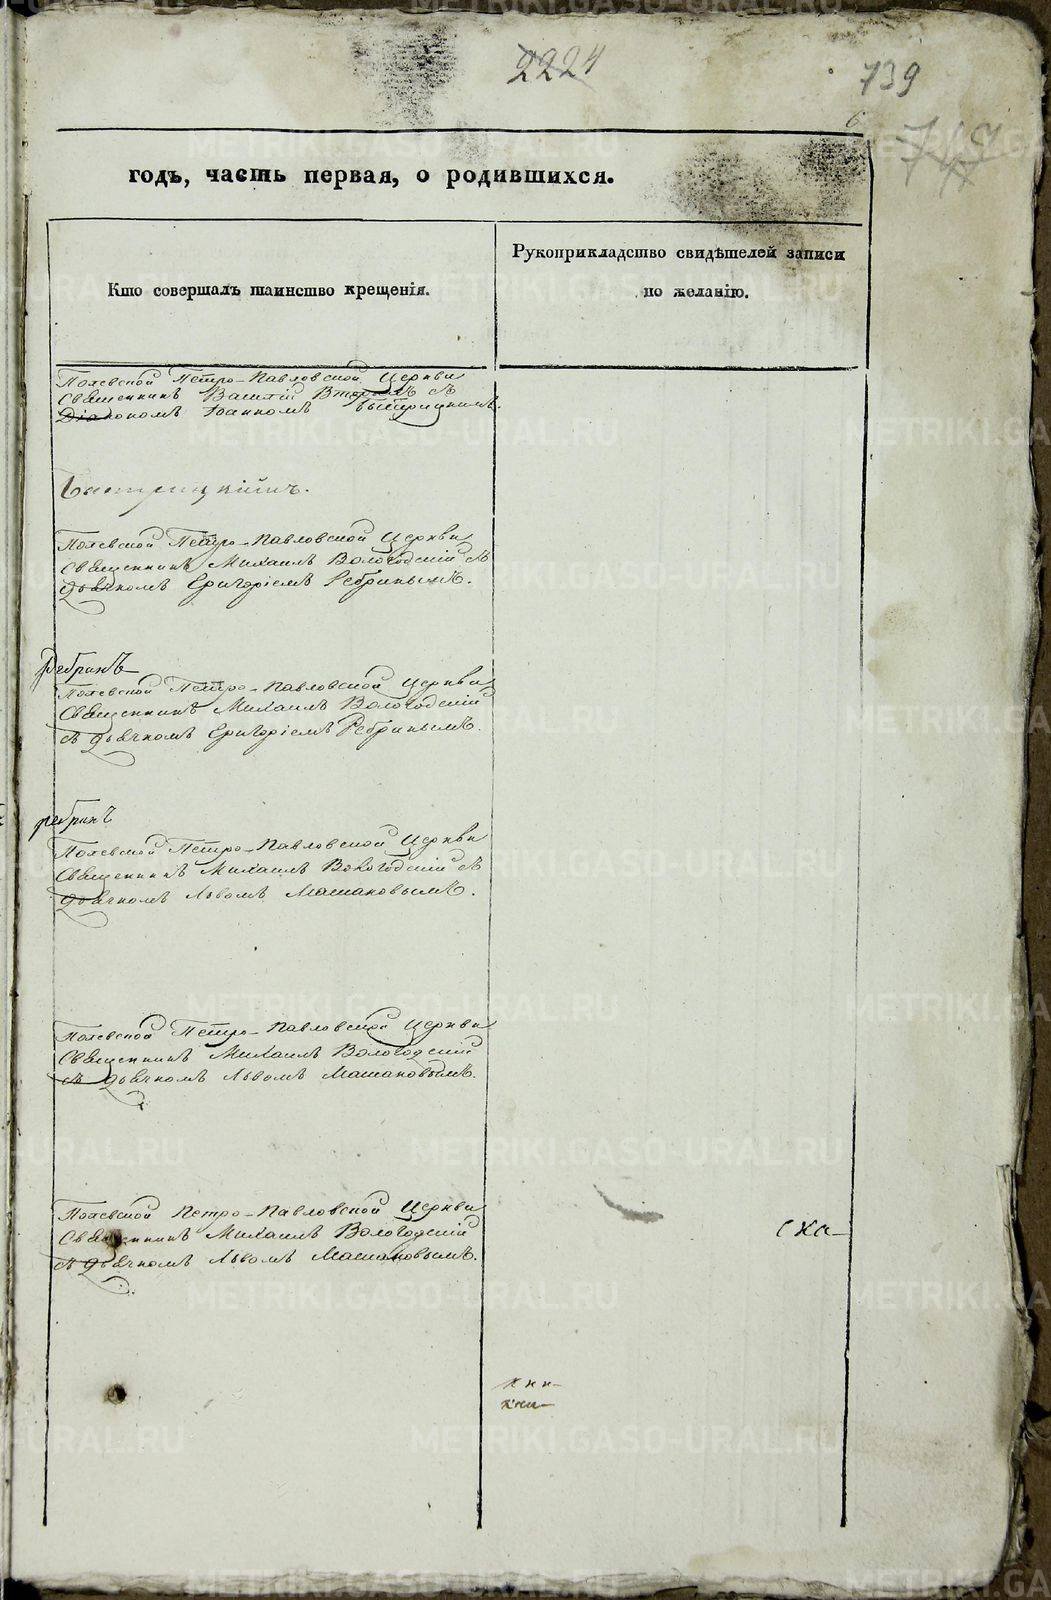 2224
739
6
747
годъ, часть первая, о родившихся.
Кто совершалъ таинство крещенія.
Рукоприкладство свидѣтелей записи
по желанію.
Полевской Петро-Павловской Церкви
Священникъ Василій Вторыхъ съ
Діакономъ Іоанномъ Быстрицкимъ.
Быстрицкійнъ.
Полевской Петро-Павловской Церкви
Священникъ Михаилъ Вологодскій съ
дьячкомъ Григоріемъ Ребринымъ.
Ребринъ
Полевской Петро-Павловской Церкви
Священникъ Михаилъ Вологодскій
съ дьячкомъ Григоріемъ Ребринымъ.
ребринъ
Полевской Петро-Павловской Церкви
Священникъ Михаилъ Вологодскій съ
дьячкомъ Львомъ Машановымъ.
Полевской Петро-Павловской Церкви
Священникъ Михаилъ Вологодскій
съ дьячкомъ Львомъ Машановымъ.
Полевской Петро-Павловской Церкви
Священникъ Михаилъ Вологодскій
съ дьячкомъ Львомъ Машановымъ.
ска-
METRIKI.GASO-URAL.RU